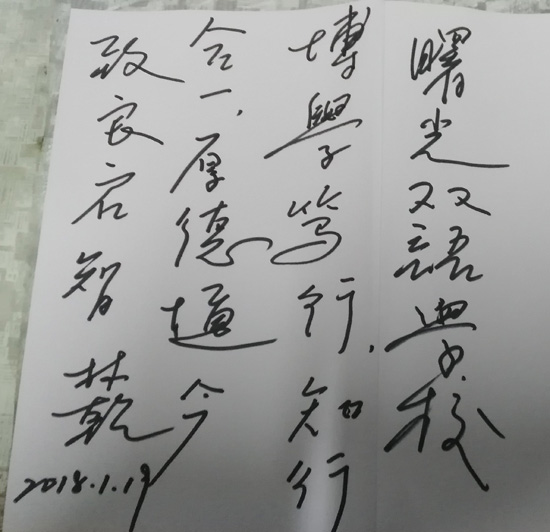 曙光双語學校
博學篤行,知行
合一,厚德通今
致良启智
林乾
2018.1.19